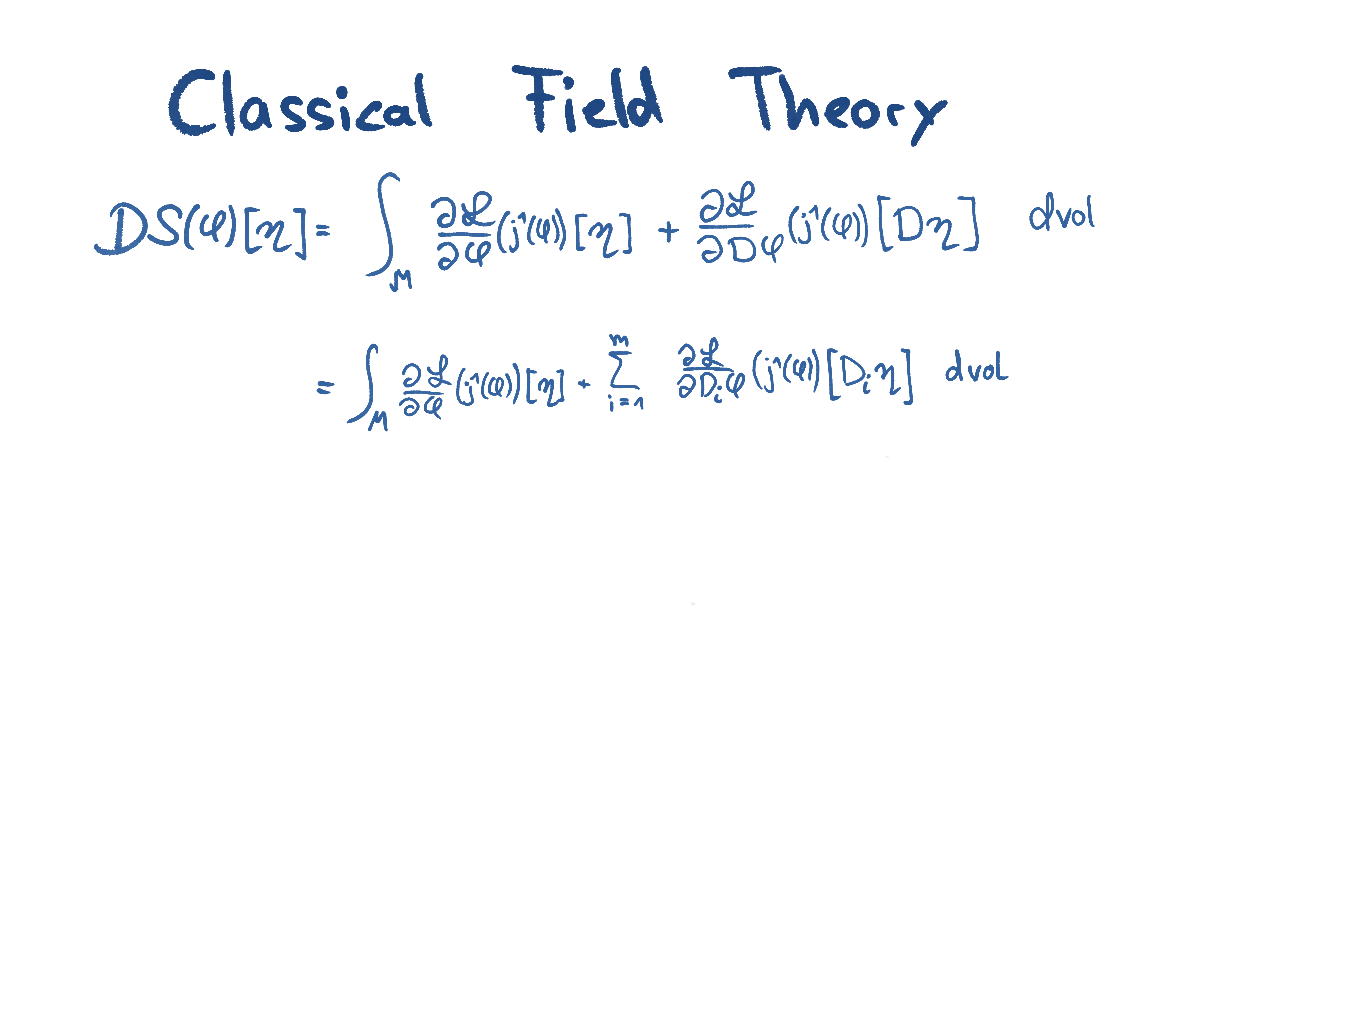 Classical Field Theory
DS(φ)[η] = ∫_M ∂ℒ/∂φ (j¹(φ))[η] + ∂ℒ/∂Dφ (j¹(φ))[Dη] dvol
= ∫_M ∂ℒ/∂φ (j¹(φ))[η] + ∑_{i=1}^m ∂ℒ/∂D_iφ (j¹(φ))[D_iη] dvol